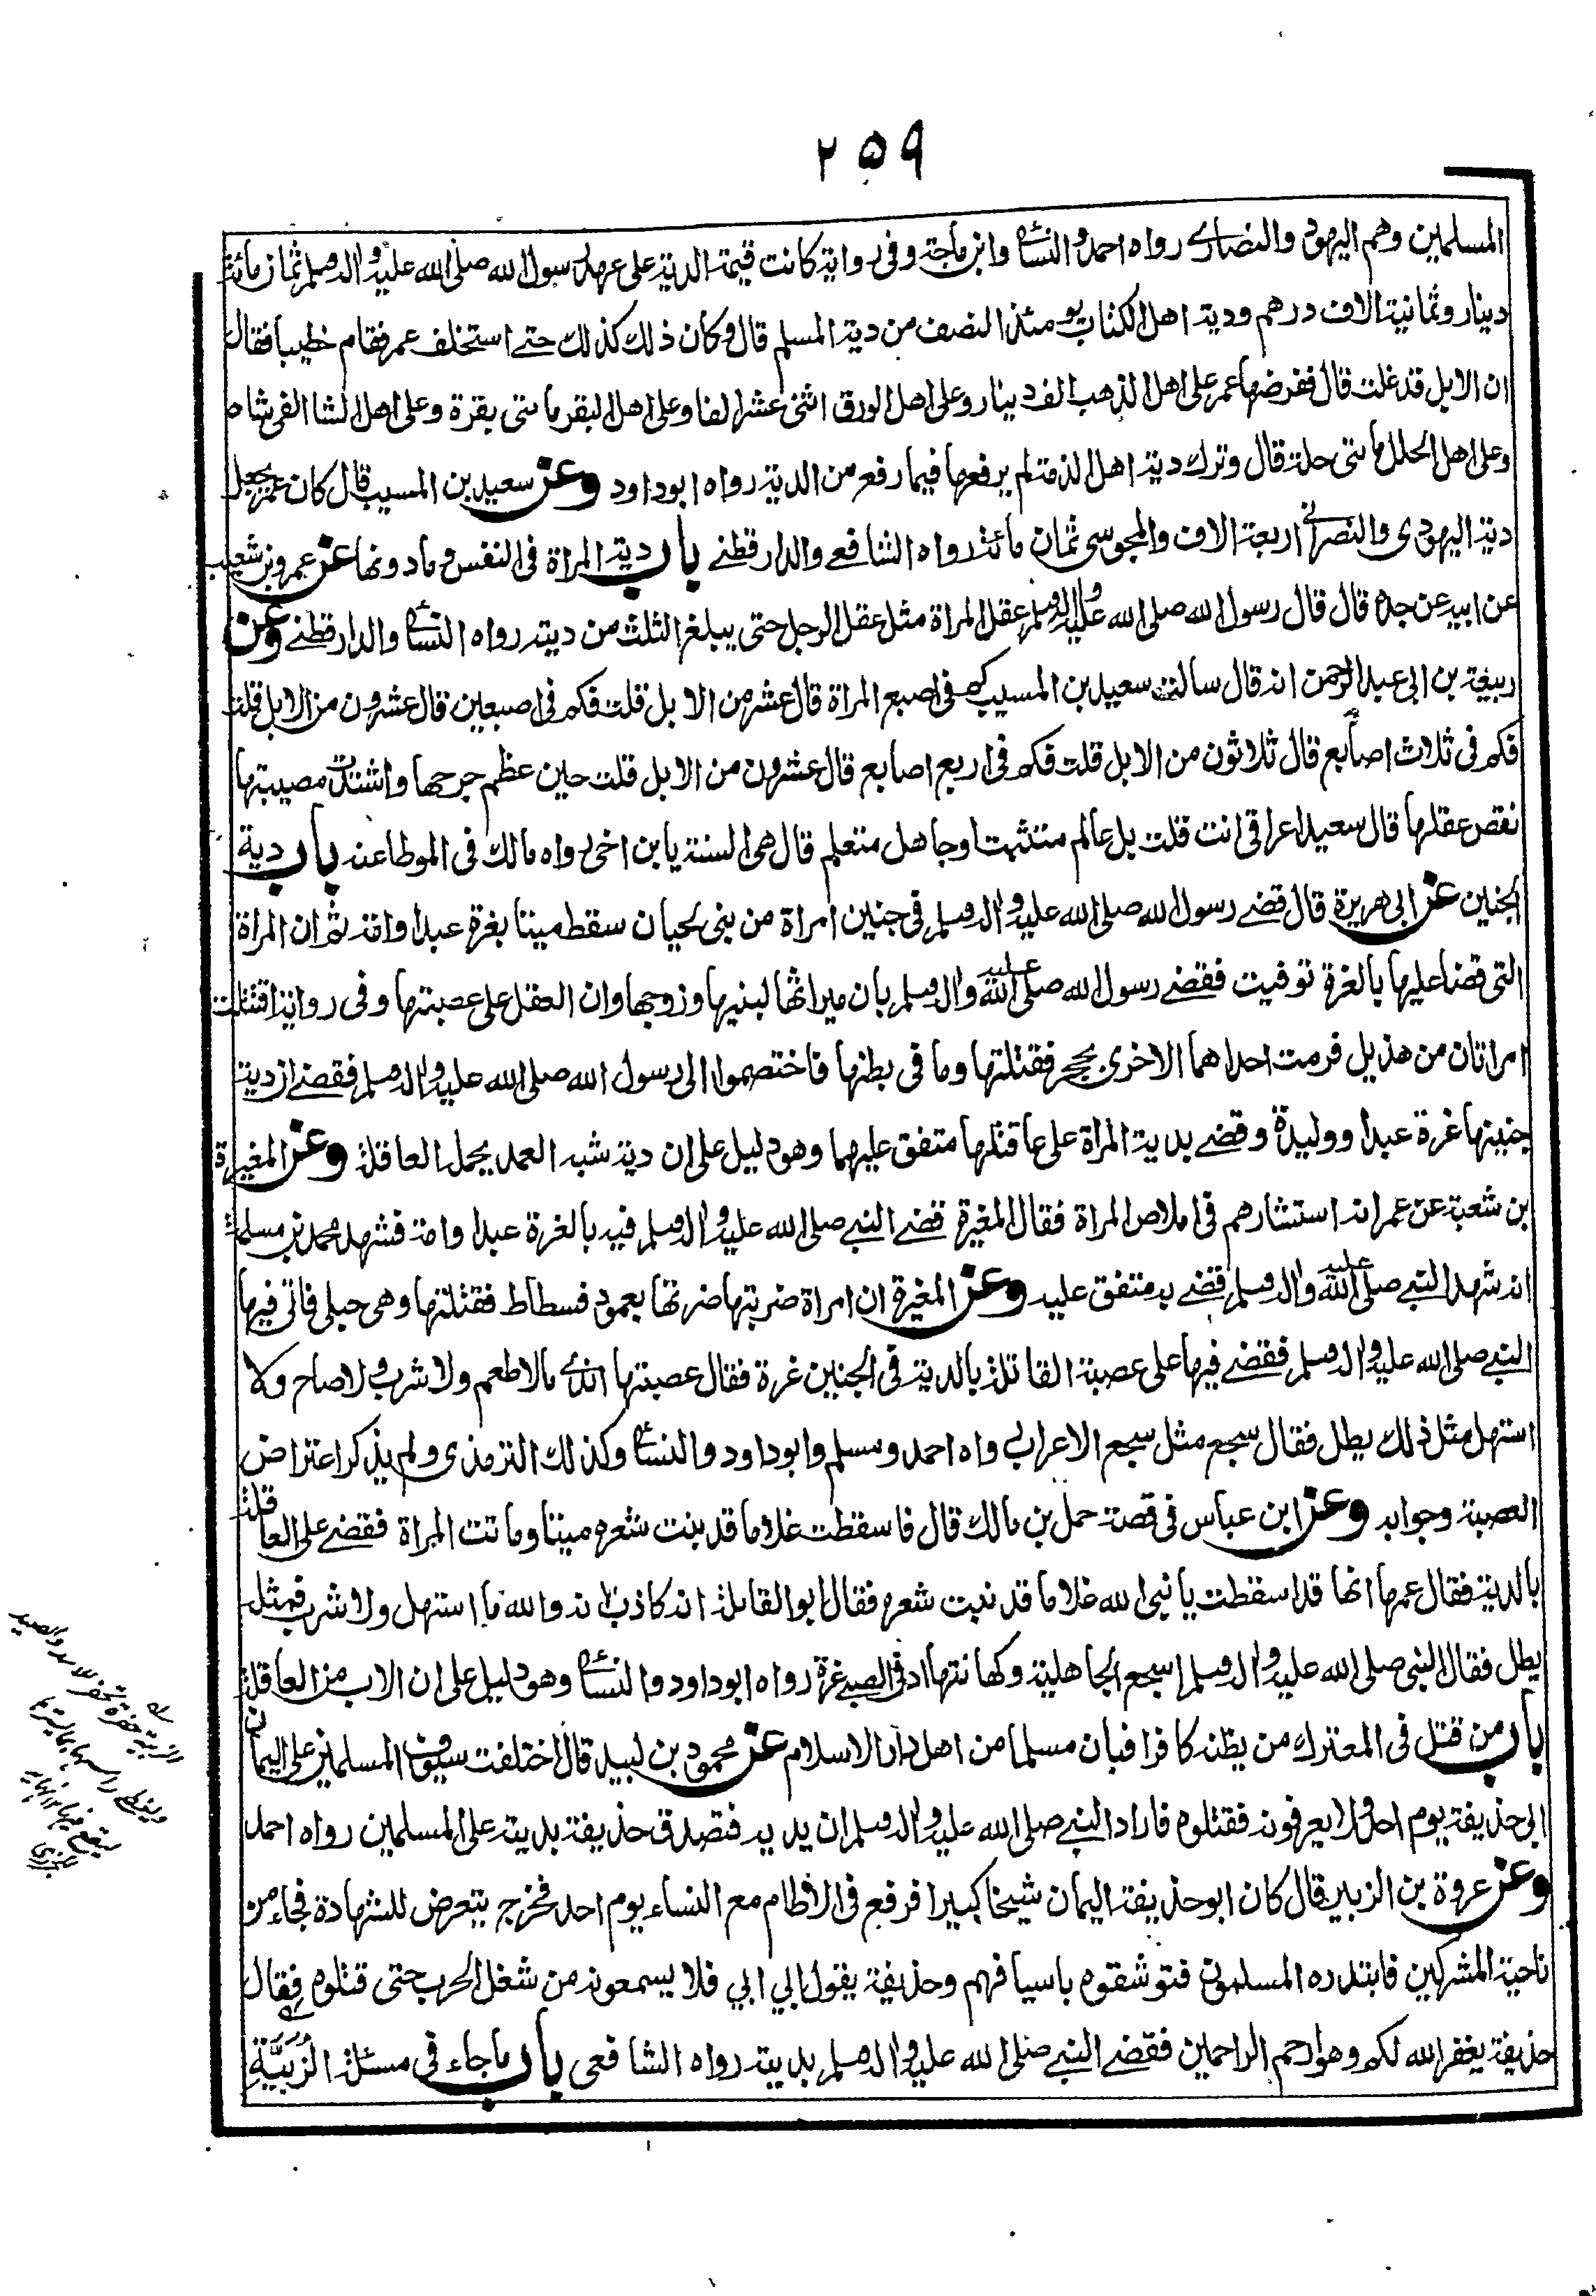 ٢٥٩
المسلمين وهم اليهود والنصارى رواه احمد والنسائى وابن ماجة وفى رواية كانت قيمة الدية على عهد رسول الله صلى الله عليه واله وسلم ثمان مائة
دينار وثمانية الاف درهم ودية اهل الكتاب يومئذ النصف من دية المسلم قال وكان ذلك كذلك حتے استخلف عمر فقام خطيبا فقال
ان الابل قد غلت قال ففرضها عمر على اهل الذهب الف دينار وعلى اهل الورق اثنى عشر الفا وعلى اهل البقر مائتى بقرة وعلى اهل الشا الفى شاة
وعلى اهل الحلل مائتى حلة قال وترك دية اهل الذمة لم يرفعها فيما رفع من الدية رواه ابو داود وعن سعيد بن المسيب قال كان عمر يجعل
دية اليهودى والنصرانے اربعة الاف والمجوسى ثمان مائة رواه الشافعے والدارقطنے باب دية المراة فى النفس وما دونها عن عمرو بن شعيب
عن ابيه عن جده قال قال رسول الله صلى الله عليه واله وسلم عقل المراة مثل عقل الرجل حتى يبلغ الثلث من ديته رواه النسائى والدارقطنے وعن
ربيعة بن ابى عبد الرحمن انه قال سالت سعيد بن المسيب كم فى اصبع المراة قال عشر من الابل قلت فكم فى اصبعين قال عشرون من الابل قلت
فكم فى ثلاث اصابع قال ثلاثون من الابل قلت فكم فى اربع اصابع قال عشرون من الابل قلت حين عظم جرحها واشتدت مصيبتها
نقص عقلها قال سعيد اعراقى انت قلت بل عالم متثبت او جاهل متعلم قال هى السنة يا بن اخى رواه مالك فى الموطا عنه باب دية
الجنين عن ابى هريرة قال قضے رسول الله صلى الله عليه واله وسلم فى جنين امراة من بنى لحيان سقط ميتا بغرة عبد او امة ثم ان المراة
التى قضا عليها بالغرة توفيت فقضے رسول الله صلى الله عليه واله وسلم بان ميراثها لبنيها وزوجها وان العقل على عصبتها وفى رواية اقتتلت
امراتان من هذيل فرمت احداهما الاخرى بحجر فقتلتها وما فى بطنها فاختصموا الى رسول الله صلى الله عليه واله وسلم فقضے ان دية
جنينها غرة عبد او وليدة وقضے بدية المراة على عاقلتها متفق عليهما وهو دليل على ان دية شبه العمد يحمل العاقلة وعن المغيرة
بن شعبة عن عمر انه استشارهم فى املاص المراة فقال المغيرة قضے النبے صلى الله عليه واله وسلم فيه بالغرة عبد او امة فشهد محمد بن مسلمة
انه شهد النبے صلى الله عليه واله وسلم قضے به متفق عليه وعن المغيرة ان امراة ضربتها ضرتها بعمود فسطاط فقتلتها وهى حبلى فاتى فيها
النبے صلى الله عليه واله وسلم فقضے فيها على عصبة القاتلة بالدية فى الجنين غرة فقال عصبتها اندے مالا طعم ولا شرب ولا صاح ولا
استهل مثل ذلك يطل فقال سجع مثل سجع الاعراب رواه احمد ومسلم وابو داود والنسائى وكذلك الترمذى ولم يذكر اعتراض
العصبة وجوابه وعن ابن عباس فى قصة حمل بن مالك قال فاسقطت غلاما قد نبت شعره ميتا وماتت المراة فقضے على العاقلة
بالدية فقال عمها انها قد اسقطت يا نبى الله غلاما قد نبت شعره فقال ابو القاتلة انه كاذب انه والله ما استهل ولا شرب فمثله
يطل فقال النبى صلى الله عليه واله وسلم اسجع الجاهلية وكهانتها اد فى الصبے غرة رواه ابو داود والنسائى وهو دليل على ان الاب من العاقلة
باب من قتل فى المعترك من يظنه كافرا فبان مسلما من اهل دار الاسلام عن محمود بن لبيد قال اختلفت سيوف المسلمين على اليمان
ابى حذيفة يوم احد ولا يعرفونه فقتلوه فاراد النبے صلى الله عليه واله وسلم ان يديه فتصدق حذيفة بديته على المسلمين رواه احمد
وعن عروة بن الزبير قال كان ابو حذيفة اليمان شيخا كبيرا فرفع فى الاطام مع النساء يوم احد فخرج يتعرض للشهادة فجاء من
ناحية المشركين فابتدره المسلمون فتوشقوه باسيافهم وحذيفة يقول ابي ابي فلا يسمعونه من شغل الحرب حتى قتلوه فقال
حذيفة يغفر الله لكم وهو ارحم الراحمين فقضے النبے صلى الله عليه واله وسلم بديته رواه الشافعى باب ما جاء فى مسئلة الزُبْيَةِ
الزبية حفرة تحفر للاسد والصيد